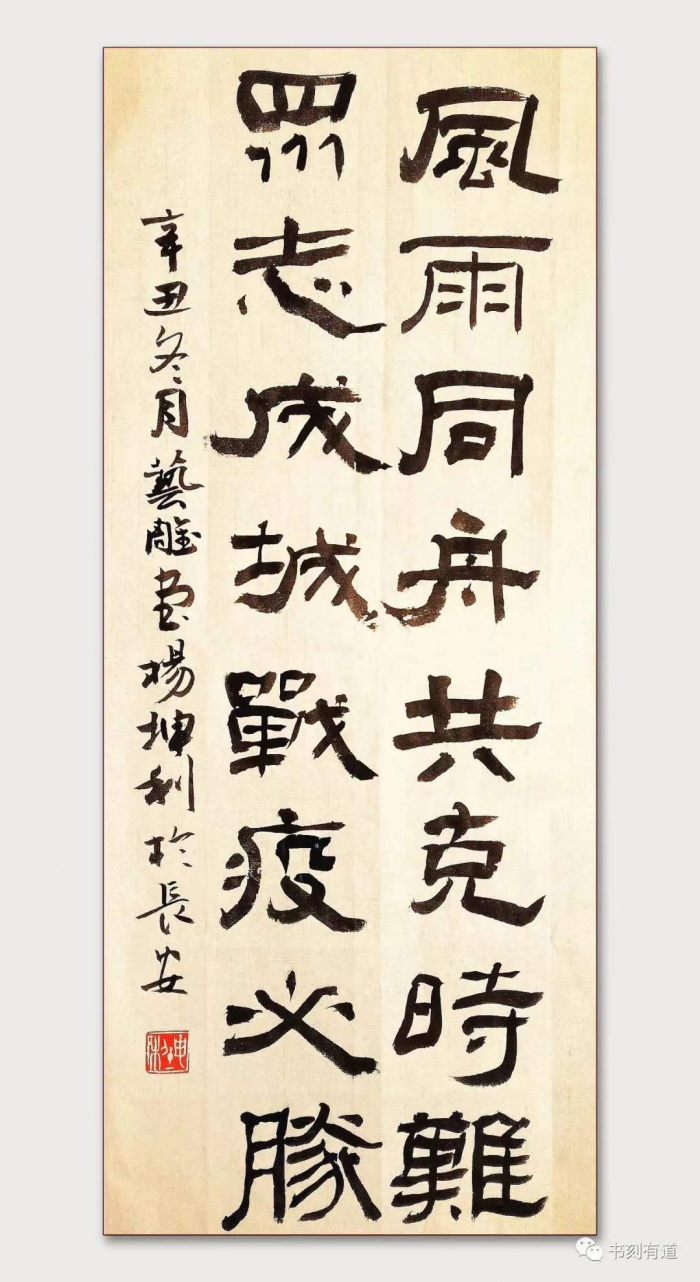 風雨同舟共克時難
眾志成城戰疫必勝
辛丑冬月藝雕堂楊坤利於長安
书刻有道